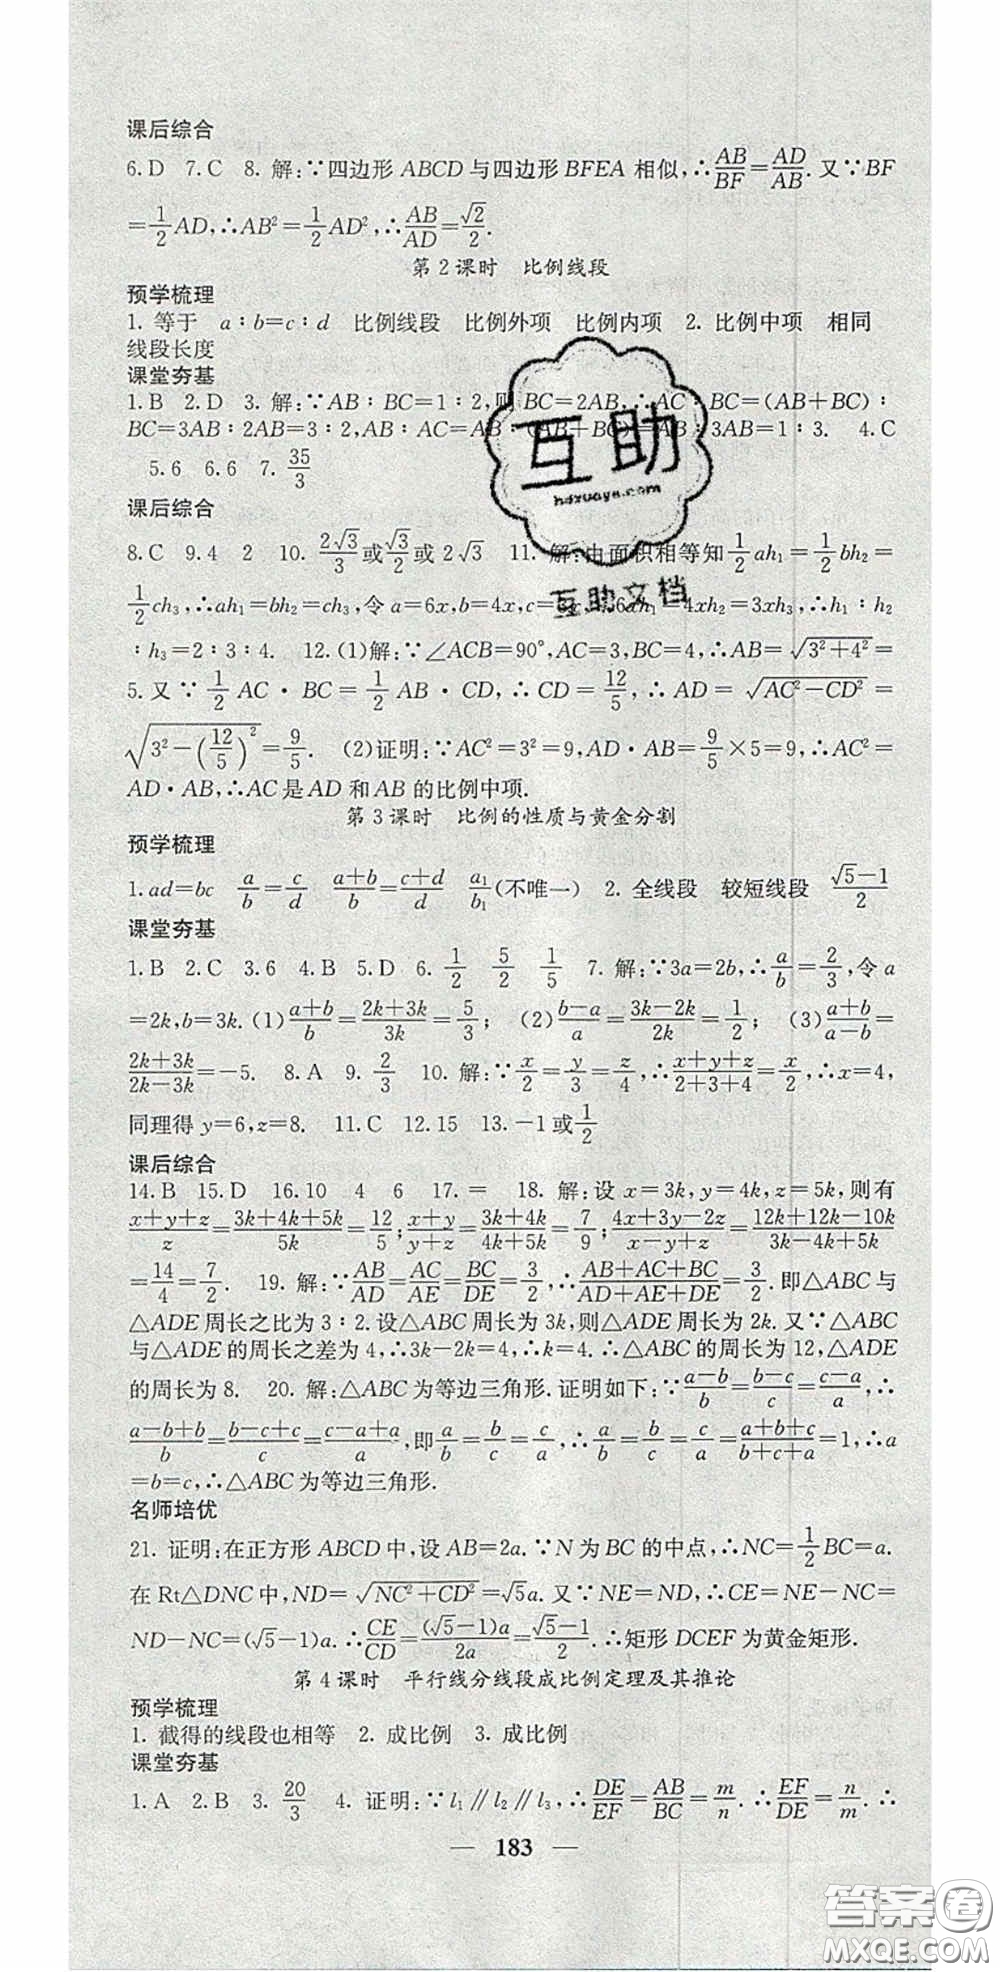 课后综合
6.D 7.C 8. 解:∵四边形 ABCD 与四边形 BFEA 相似,∴AB/BF=AD/AB. 又∵BF
=1/2AD,∴AB²=1/2AD²,∴AB/AD=√2/2.
第2课时 比例线段
预学梳理
1. 等于 a∶b=c∶d 比例线段 比例外项 比例内项 2. 比例中项 相同
线段长度
课堂夯基
1.B 2.D 3. 解:∵AB∶BC=1∶2,则 BC=2AB,∴AC∶BC=(AB+BC)∶
BC=3AB∶2AB=3∶2,AB∶AC=AB (AB+BC) 3AB=1∶3. 4.C
5.6 6.6 7. 35/3
课后综合
8.C 9.4 2 10. 2√3/3或√3/2或2√3 11. 解:由面积相等知1/2ah₁=1/2bh₂=
1/2ch₃,∴ah₁=bh₂=ch₃,令a=6x,b=4x,c=3x,∴6xh₁ 4xh₂=3xh₃,∴h₁∶h₂
∶h₃=2∶3∶4. 12.(1)解:∵∠ACB=90°,AC=3,BC=4,∴AB=√(3²+4²)=
5.又∵1/2AC·BC=1/2AB·CD,∴CD=12/5,∴AD=√(AC²-CD²)=
√(3²-(12/5)²)=9/5. (2)证明:∵AC²=3²=9,AD·AB=9/5×5=9,∴AC²=
AD·AB,∴AC是AD和AB的比例中项.
第3课时 比例的性质与黄金分割
预学梳理
1.ad=bc a/b=c/d (a+b)/b=(c+d)/d a₁/b₁(不唯一) 2. 全线段 较短线段 (√5-1)/2
课堂夯基
1.B 2.C 3.6 4.B 5.D 6. 1/2 5/2 1/5 7. 解:∵3a=2b,∴a/b=2/3,令a
=2k,b=3k.(1)(a+b)/b=(2k+3k)/3k=5/3; (2)(b-a)/a=(3k-2k)/2k=1/2; (3)(a+b)/(a-b)=
(2k+3k)/(2k-3k)=-5. 8.A 9. 2/3 10. 解:∵x/2=y/3=z/4,∴(x+y+z)/(2+3+4)=x/2,∴x=4,
同理得y=6,z=8. 11.C 12.15 13.-1或1/2
课后综合
14.B 15.D 16.10 4 6 17.= 18. 解:设x=3k,y=4k,z=5k,则有
(x+y+z)/z=(3k+4k+5k)/5k=12/5;(x+y)/(y+z)=(3k+4k)/(4k+5k)=7/9;(4x+3y-2z)/(x-y+z)=(12k+12k-10k)/(3k-4k+5k)
=14/4=7/2. 19. 解:∵AB/AD=AC/AE=BC/DE=3/2,∴(AB+AC+BC)/(AD+AE+DE)=3/2.即△ABC与
△ADE周长之比为3∶2.设△ABC周长为3k,则△ADE周长为2k.又∵△ABC
与△ADE的周长之差为4,∴3k-2k=4,∴k=4.∴△ABC的周长为12,△ADE
的周长为8. 20. 解:△ABC为等边三角形.证明如下:∵(a-b)/b=(b-c)/c=(c-a)/a,∴
(a-b+b)/b=(b-c+c)/c=(c-a+a)/a,即a/b=b/c=c/a,∴a/b=b/c=c/a=(a+b+c)/(b+c+a)=1,∴a
=b=c,∴△ABC为等边三角形.
名师培优
21. 证明:在正方形ABCD中,设AB=2a.∵N为BC的中点,∴NC=1/2BC=a.
在Rt△DNC中,ND=√(NC²+CD²)=√5a.又∵NE=ND,∴CE=NE-NC=
ND-NC=(√5-1)a.∴CE/CD=(√5-1)a/2a=(√5-1)/2.∴矩形DCEF为黄金矩形.
第4课时 平行线分线段成比例定理及其推论
预学梳理
1. 截得的线段也相等 2. 成比例 3. 成比例
课堂夯基
1.A 2.B 3. 20/3 4. 证明:∵l₁∥l₂∥l₃,∴DE/EF=AB/BC=m/n.∴EF/DE=n/m.∴
— 183 —
互助
hdzuoye.com
互助文档
答案圈
MXQE.COM